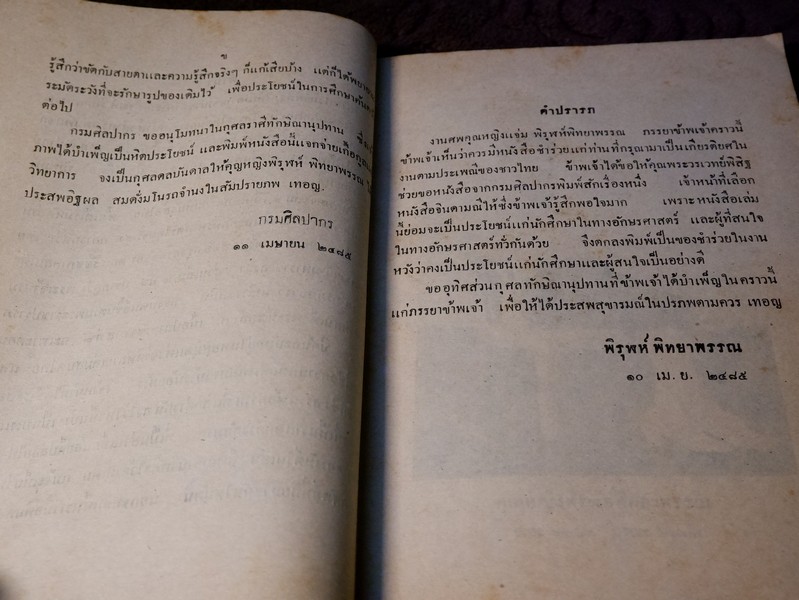 ข
รู้สึกว่าขัดกับสายตาและความรู้สึกจริงๆ ก็แก้เสียบ้าง แต่ก็ได้พยายาม
ระมัดระวังที่จะรักษารูปของเดิมไว้ เพื่อประโยชน์ในการศึกษาค้นคว้า
ต่อไป
กรมศิลปากร ขออนุโมทนาในกุศลราศีทักษิณานุปทาน ซึ่ง
ภาพได้บำเพ็ญเป็นหิตประโยชน์ และพิมพ์หนังสือนี้แจกจ่ายเกื้อกูล
วิทยาการ จงเป็นกุศลดลบันดาลให้คุญหญิงพิรุฬห์ พิทยาพรรณ
ประสพอิฐผล สมดั่งมโนรถจำนงในสัมปรายภพ เทอญ.
กรมศิลปากร
๑๑ เมษายน ๒๔๘๕
คำปรารภ
งานศพคุณหญิงแช่ม พิรุฬห์พิทยาพรรณ ภรรยาข้าพเจ้าคราวนี้
ข้าพเจ้าเห็นว่าควรมีหนังสือชำร่วยแก่ท่านที่กรุณามาเป็นเกียรติยศใน
งานตามประเพณีของชาวไทย ข้าพเจ้าได้ขอให้คุณพระวรเวทย์พิสิฐ
ช่วยขอหนังสือจากกรมศิลปากรพิมพ์สักเรื่องหนึ่ง เจ้าหน้าที่เลือก
หนังสือจินดามณีให้ซึ่งข้าพเจ้ารู้สึกพอใจมาก เพราะหนังสือเล่ม
นี้ย่อมจะเป็นประโยชน์แก่นักศึกษาในทางอักษรศาสตร์ และผู้ที่สนใจ
ในทางอักษรศาสตร์ทั่วกันด้วย จึงตกลงพิมพ์เป็นของชำร่วยในงาน
หวังว่าคงเป็นประโยชน์แก่นักศึกษาและผู้สนใจเป็นอย่างดี
ขออุทิศส่วนกุศลทักษิณานุปทานที่ข้าพเจ้าได้บำเพ็ญในคราวนี้
แก่ภรรยาข้าพเจ้า เพื่อให้ได้ประสพสุขารมณ์ในปรภพตามควร เทอญ
พิรุฬห์ พิทยาพรรณ
๑๐ เม.ย. ๒๔๘๕